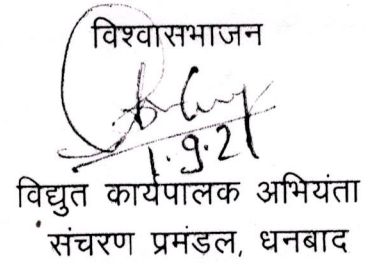 विश्वासभाजन
1.9.21
विद्युत कार्यपालक अभियंता
संचरण प्रमंडल, धनबाद